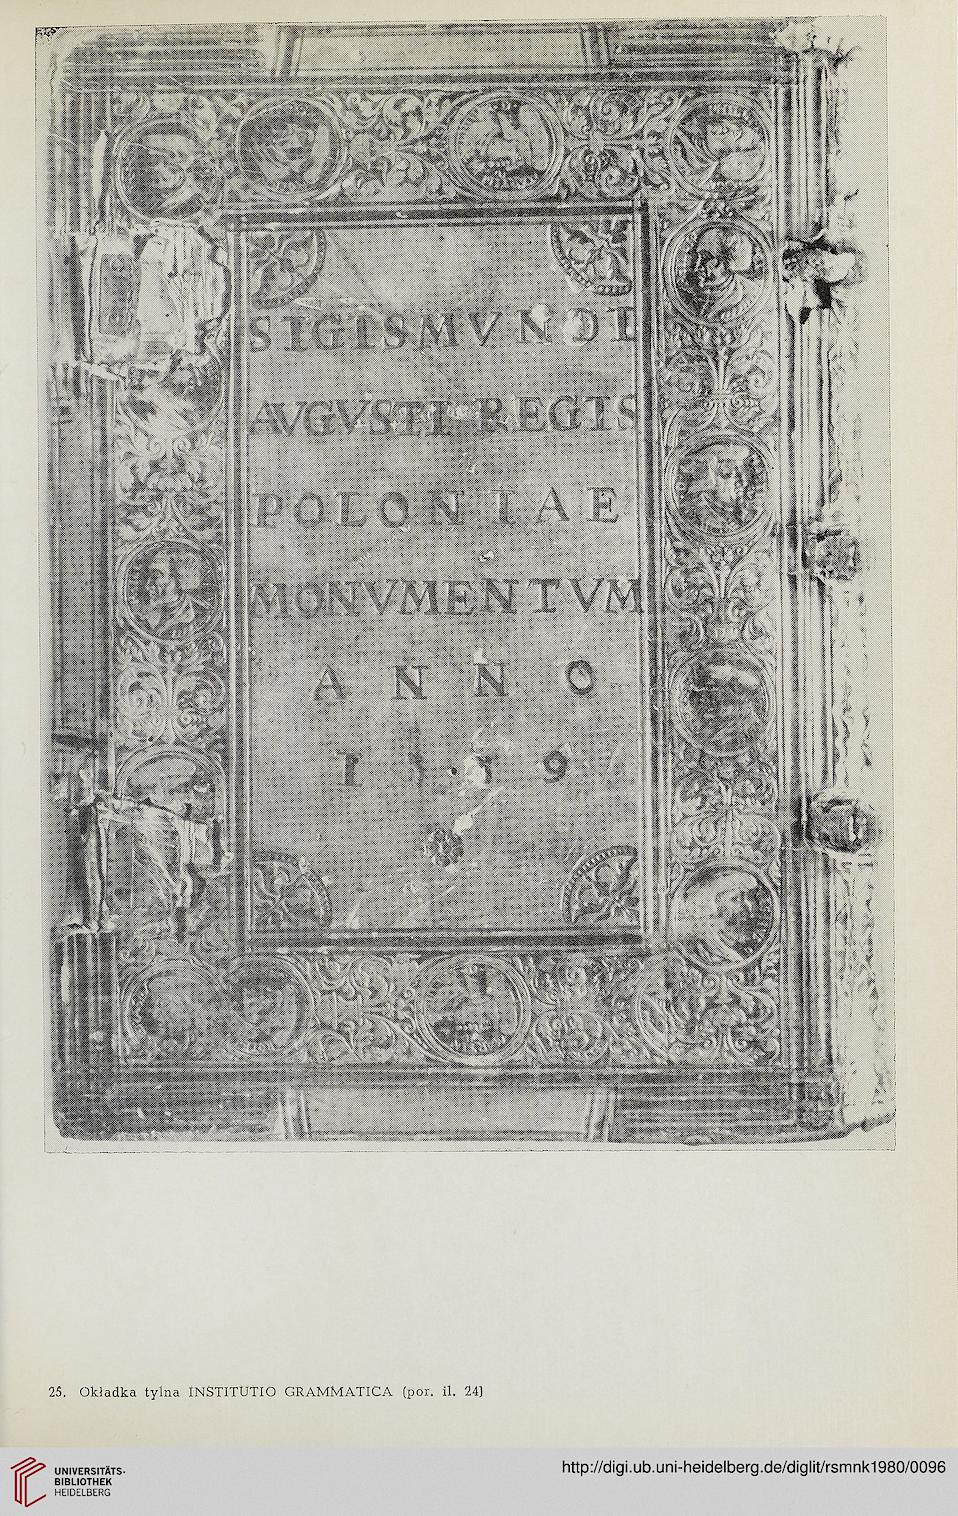 SIGISMVNDI
AVGVSTI REGIS
POLONIAE
MONVMENTVM
ANNO
25. Okładka tylna INSTITUTIO GRAMMATICA (por. il. 24)
UNIVERSITÄTS-
BIBLIOTHEK
HEIDELBERG
http://digi.ub.uni-heidelberg.de/diglit/rsmnk1980/0096